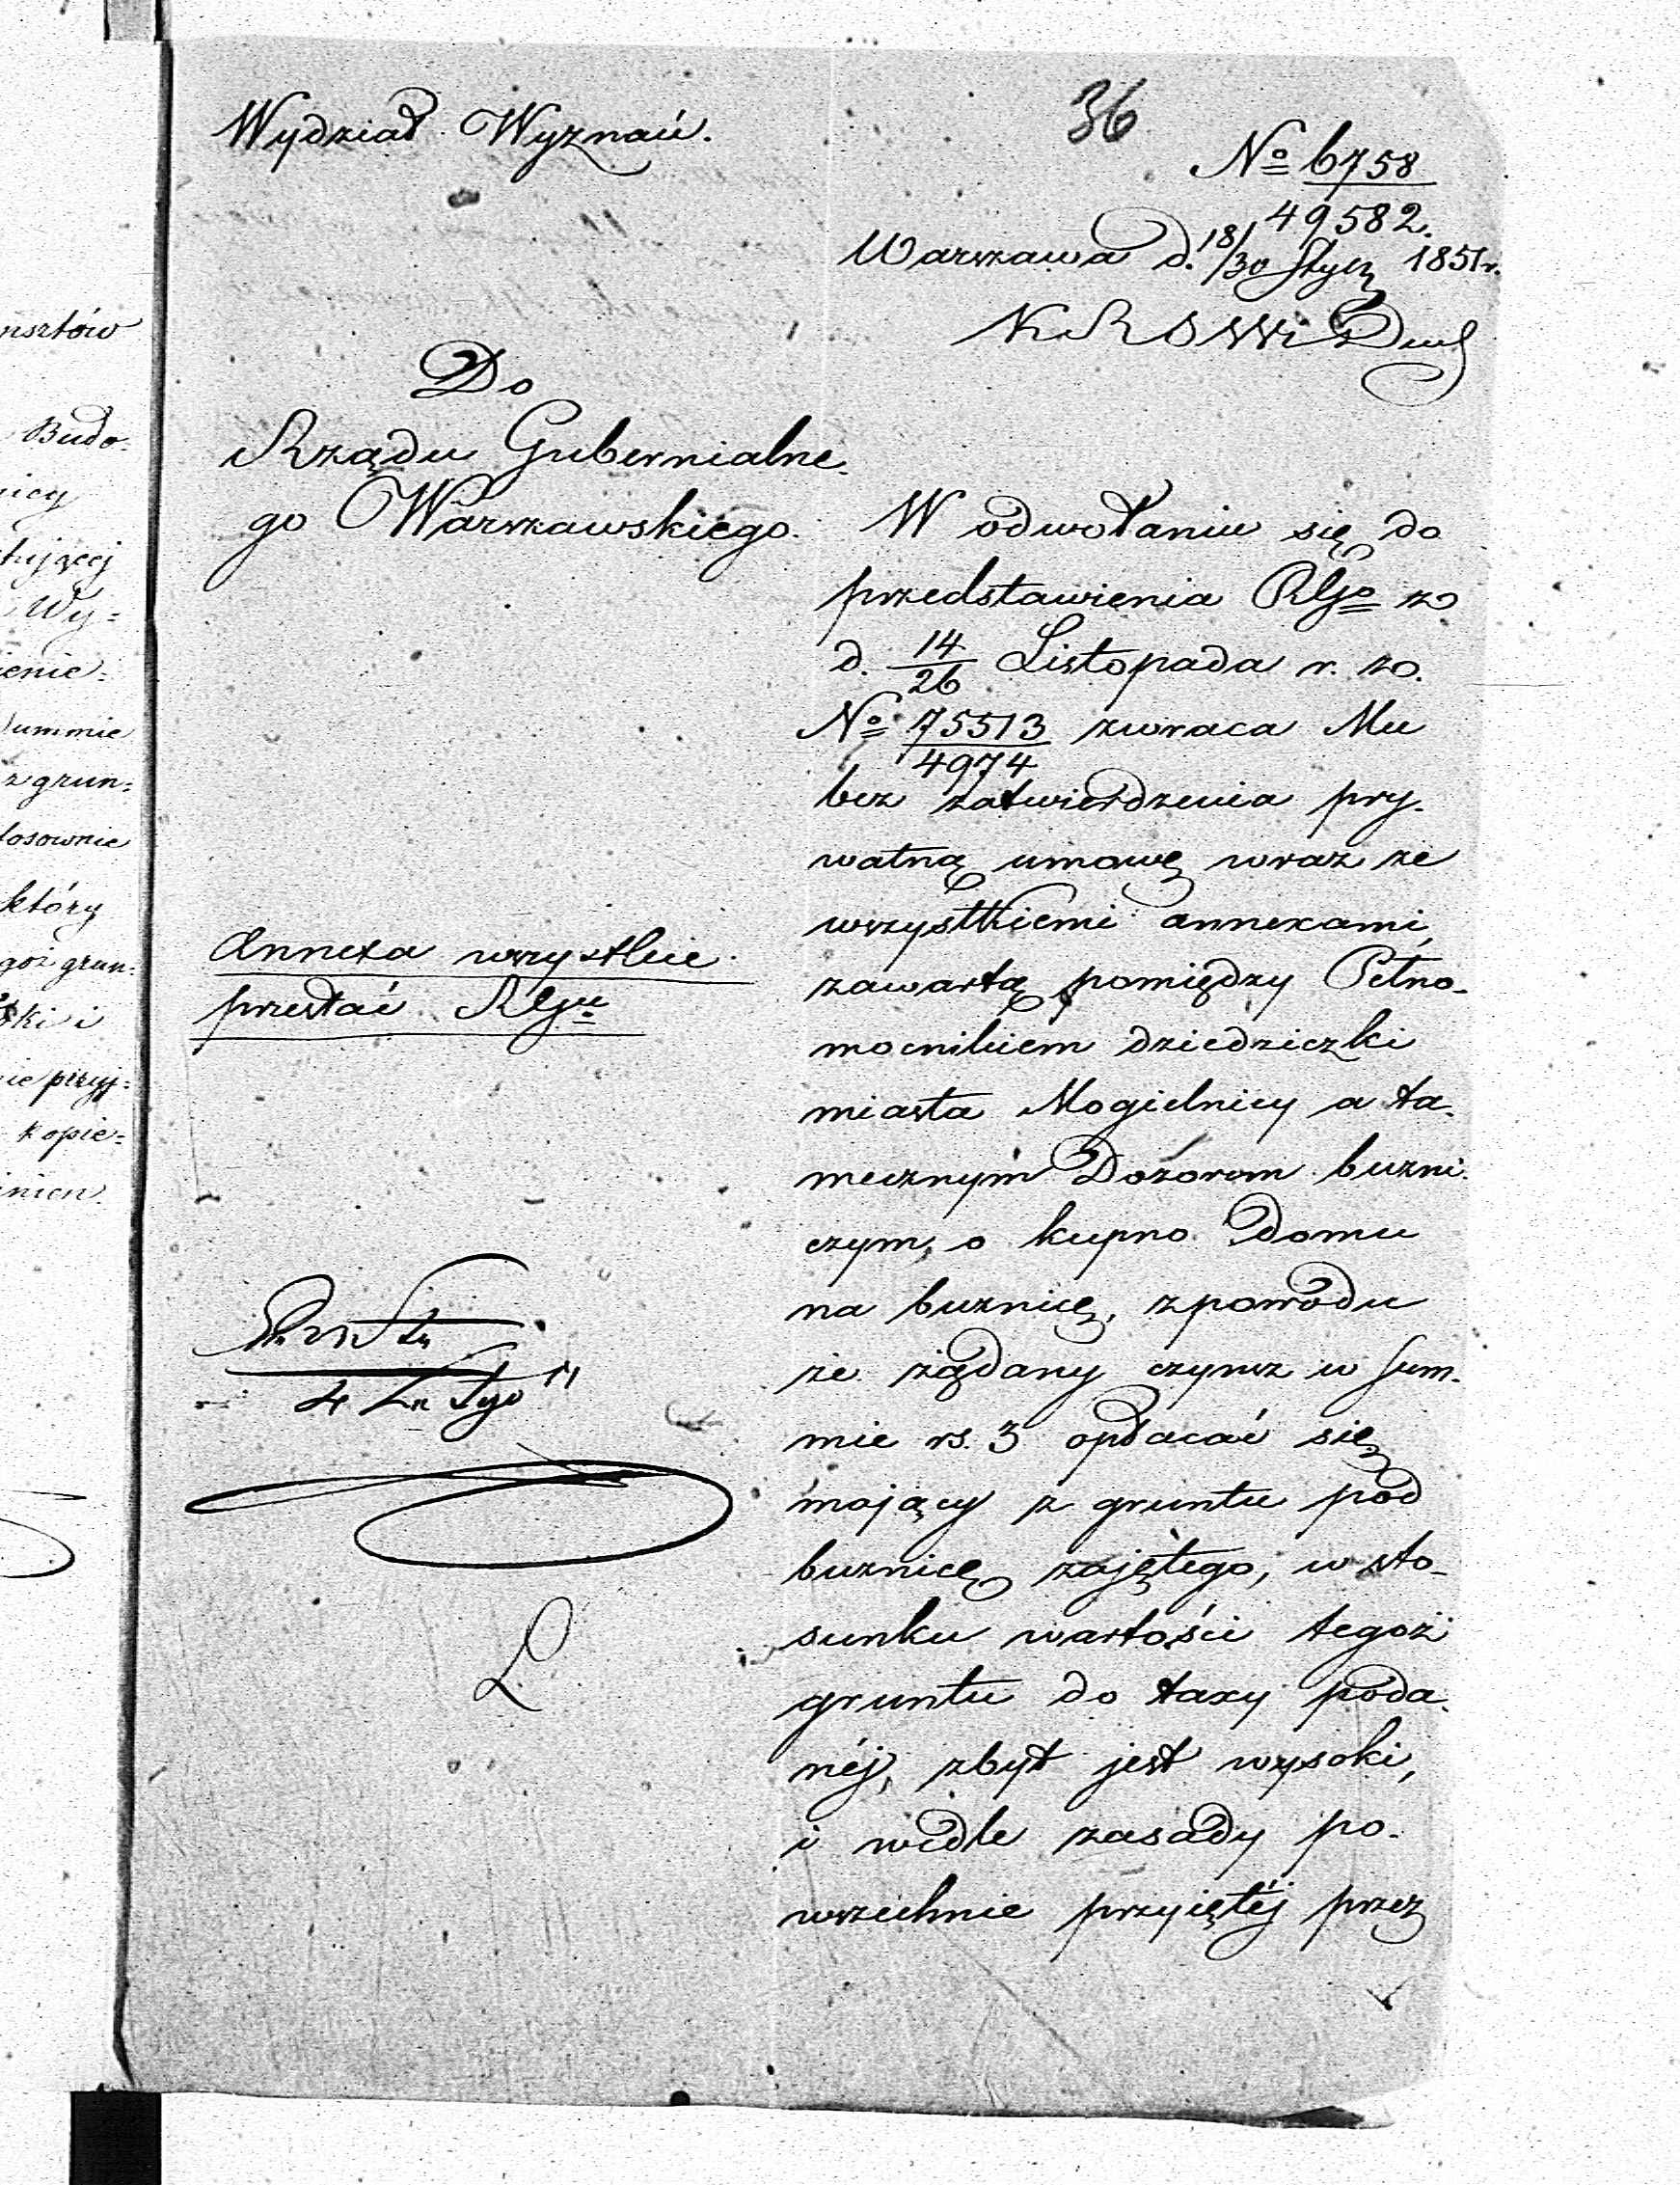 36
Wydział Wyznań.
№ 6758
49582.
Warszawa d. 18/30 Stycz 1851 r.
K R S W i D
Do
Rządu Gubernialne-
go Warszawskiego.
W odwołaniu się do
przedstawienia RGo z
d. 14/26 Listopada r. z.
№ 75513/4974 zwraca Mu
bez zatwierdzenia pry-
watną umowę wraz ze
wszystkiemi annexami,
zawartą pomiędzy Pełno-
mocnikiem dziedziczki
miasta Mogielnicy a ta-
mecznym Dozorem bużni-
czym, o kupno Domu
na bużnicę, zpowodu
że żądany czynsz w sum-
mie rs. 3 opłacać się
mający z gruntu pod
bużnicę zajętego, w sto-
sunku wartości tegoż
gruntu do taxy poda-
néj, zbyt jest wysoki,
i wedle zasady po-
wszechnie przyiętéj przez
Annexa wszystkie
przesłać RGu
L
nsztów
Budo-
nicy
tującej
Wy=
ienie=
Summie
z grun=
tosownie
który
goż grun=
ski i
ie przyj=
kopie=
inien